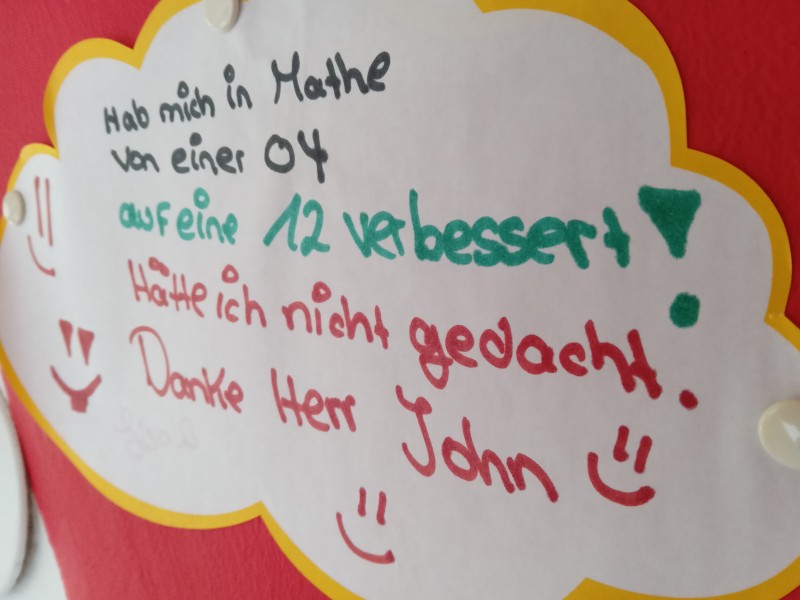 Hab mich in Mathe
von einer 04
auf eine 12 verbessert!
Hätte ich nicht gedacht.
Danke Herr John